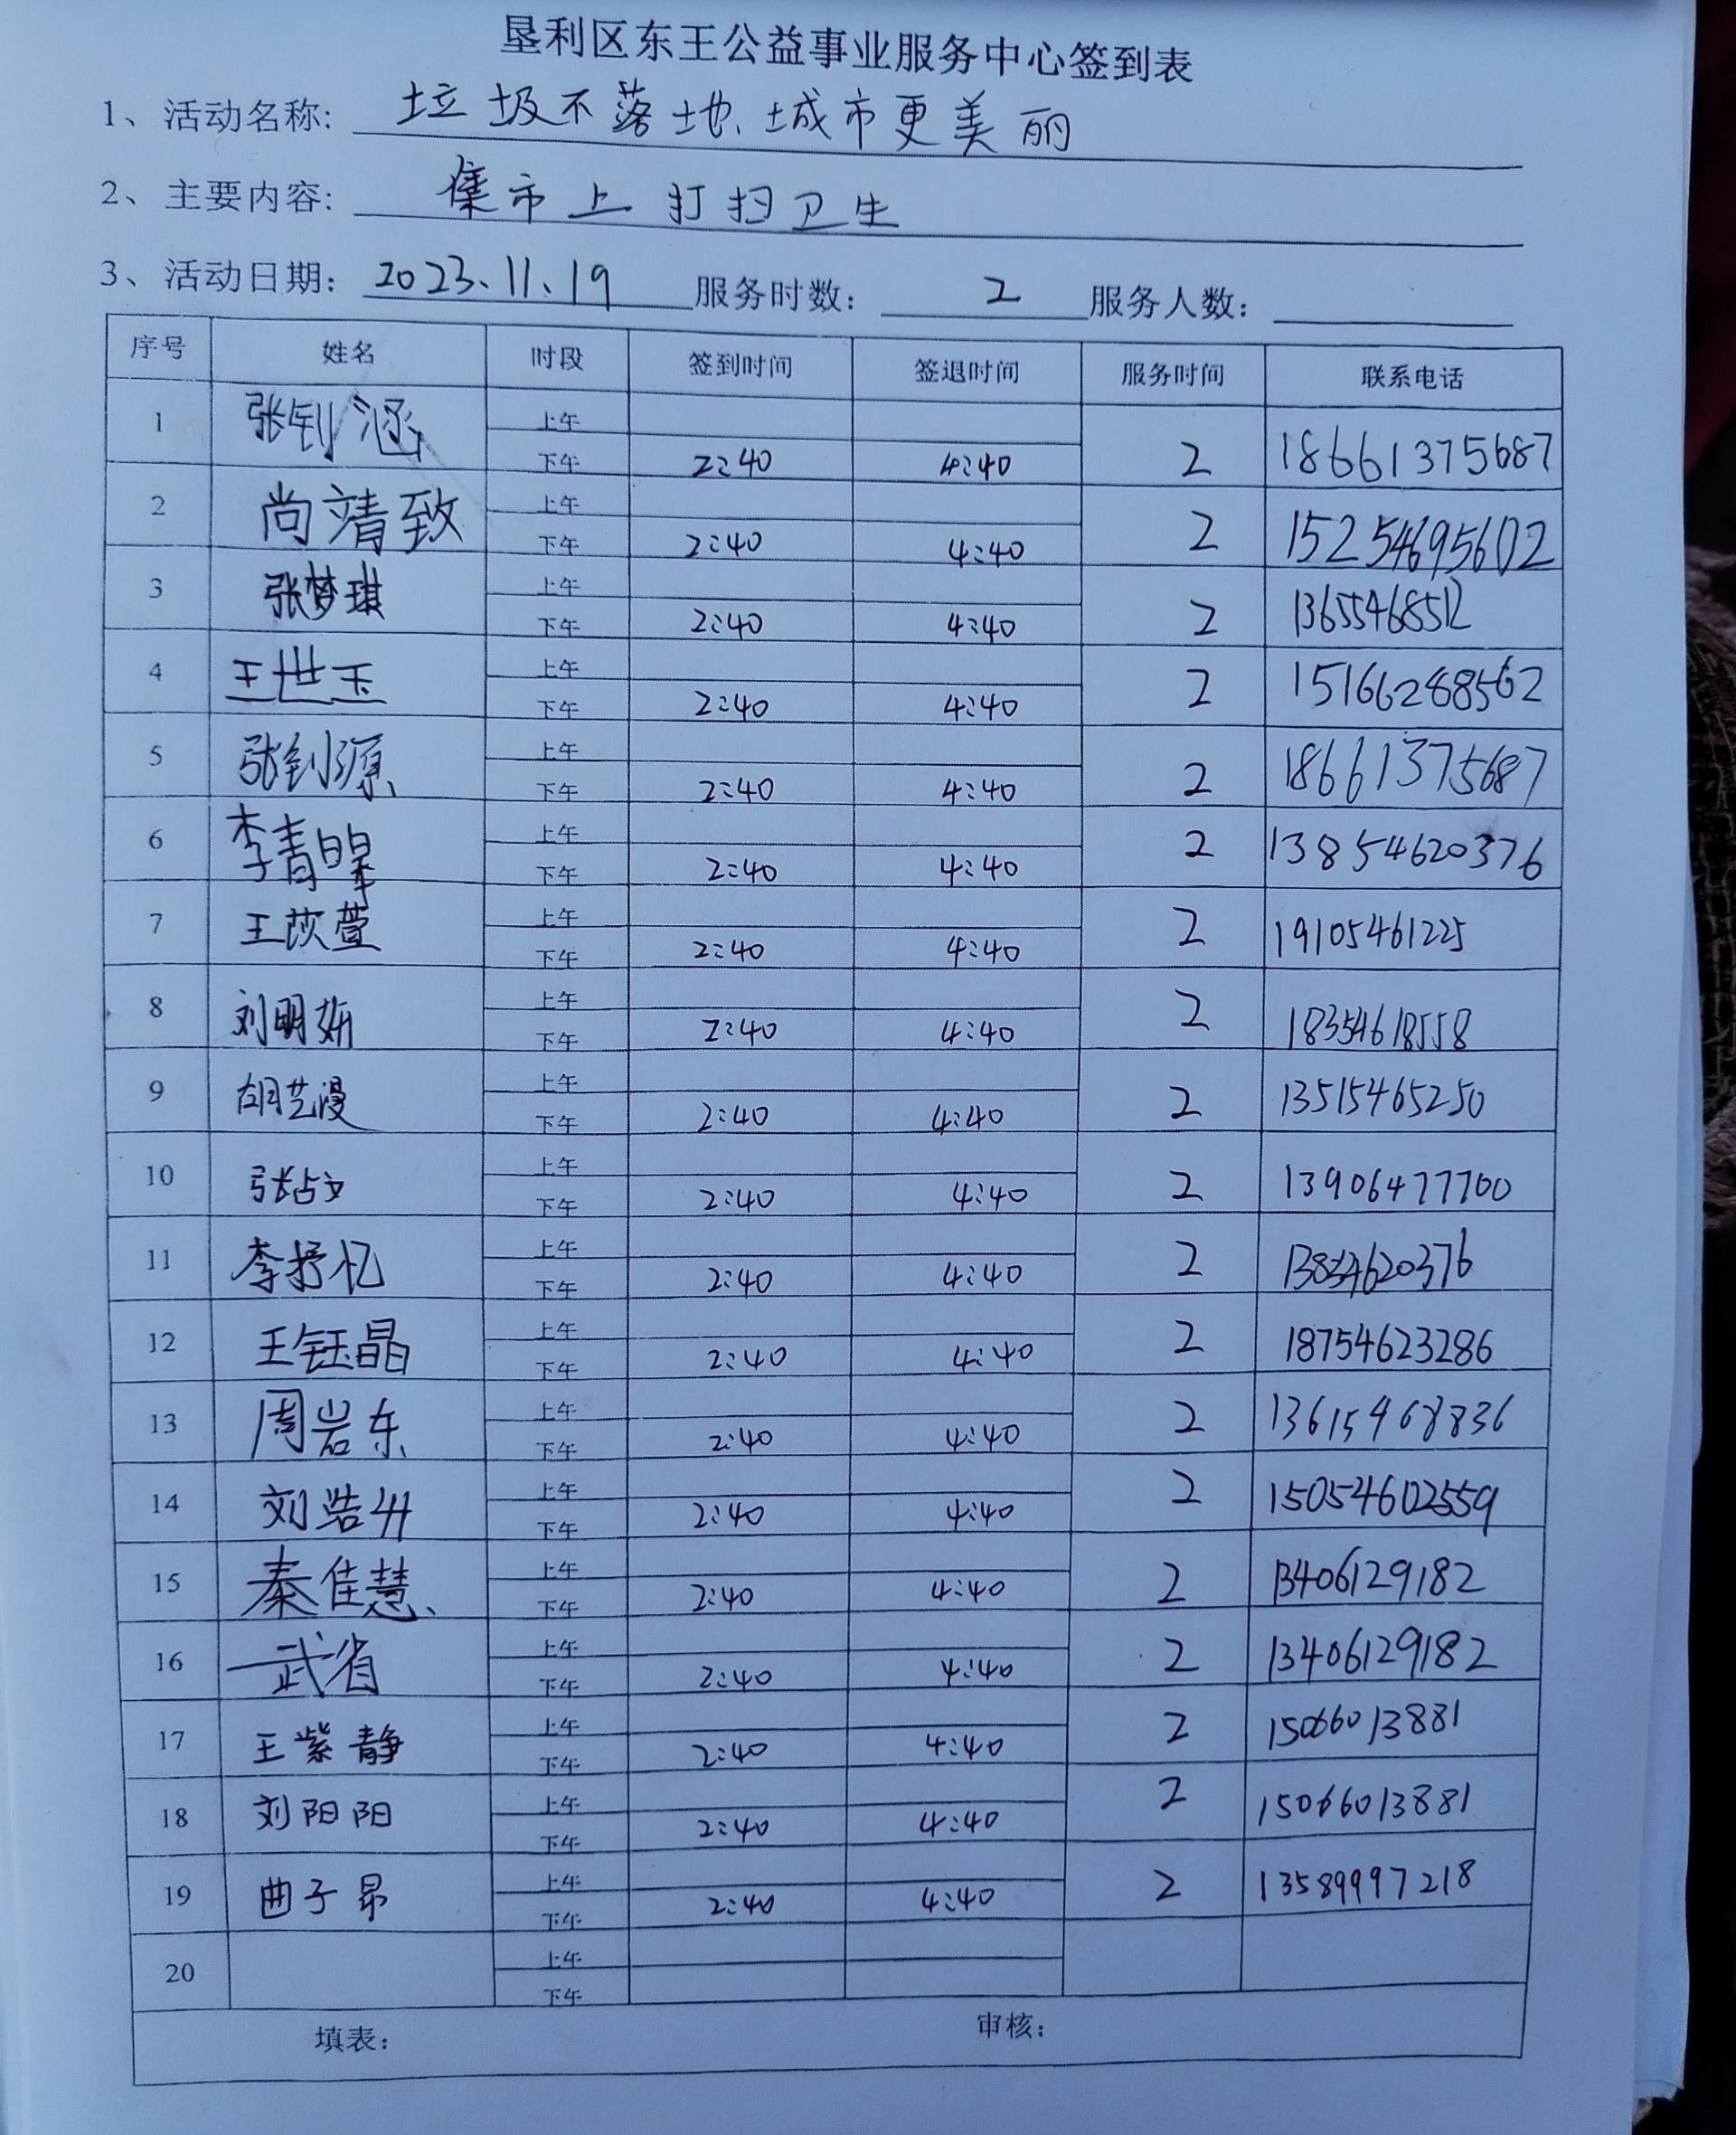 垦利区东王公益事业服务中心签到表
1、活动名称: 垃圾不落地、城市更美丽
2、主要内容: 集市上打扫卫生
3、活动日期: 2023.11.19 服务时数: 2 服务人数:
序号 姓名 时段 签到时间 签退时间 服务时间 联系电话
1 张钊涵 上午
下午 2:40 4:40 2 18661375687
2 尚靖致 上午
下午 2:40 4:40 2 15254695602
3 张梦琪 上午
下午 2:40 4:40 2 13655468512
4 王世玉 上午
下午 2:40 4:40 2 15166288562
5 张钊源 上午
下午 2:40 4:40 2 18661375687
6 李青皞 上午
下午 2:40 4:40 2 13854620376
7 王苡萱 上午
下午 2:40 4:40 2 19105461225
8 刘明妍 上午
下午 2:40 4:40 2 18354618558
9 胡艺漫 上午
下午 2:40 4:40 2 13515465250
10 张占文 上午
下午 2:40 4:40 2 13906477700
11 李抒忆 上午
下午 2:40 4:40 2 13854620376
12 王钰晶 上午
下午 2:40 4:40 2 18754623286
13 周岩东 上午
下午 2:40 4:40 2 13615468836
14 刘浩 上午
下午 2:40 4:40 2 15054602559
15 秦佳慧 上午
下午 2:40 4:40 2 13406129182
16 武省 上午
下午 2:40 4:40 2 13406129182
17 王紫静 上午
下午 2:40 4:40 2 15066013881
18 刘阳阳 上午
下午 2:40 4:40 2 15066013881
19 曲子昂 上午
下午 2:40 4:40 2 13589997218
20 上午
下午
填表: 审核: